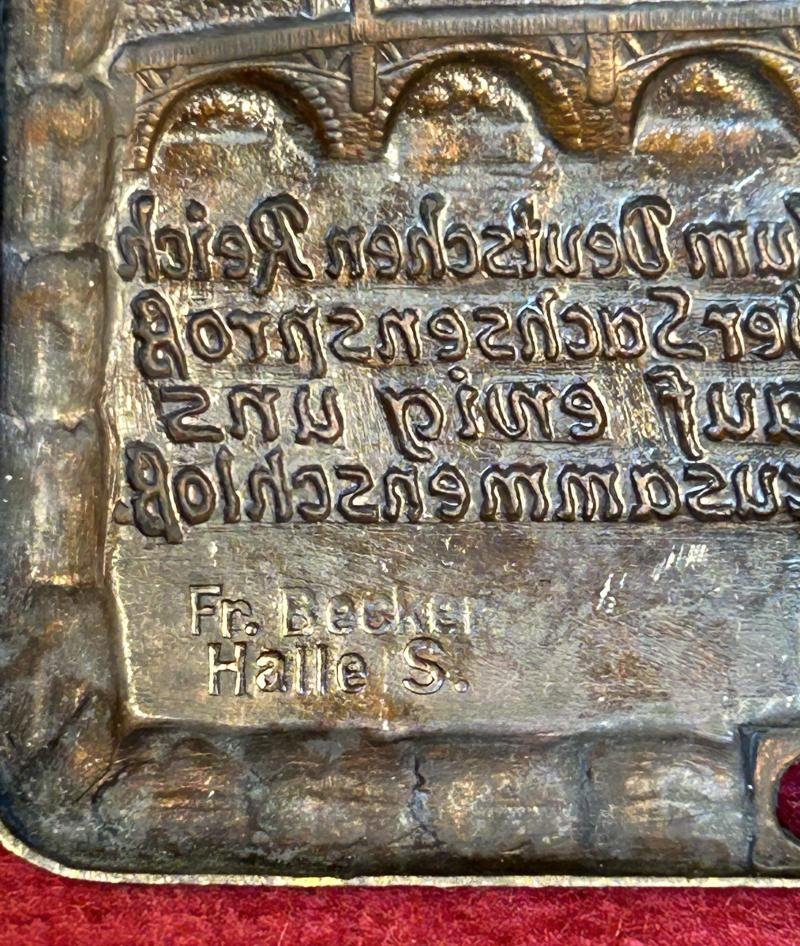 Zum Deutschen Reich
der Sachsensproß
auf ewig uns
zusammenschloß
Fr. Becker
Halle S.